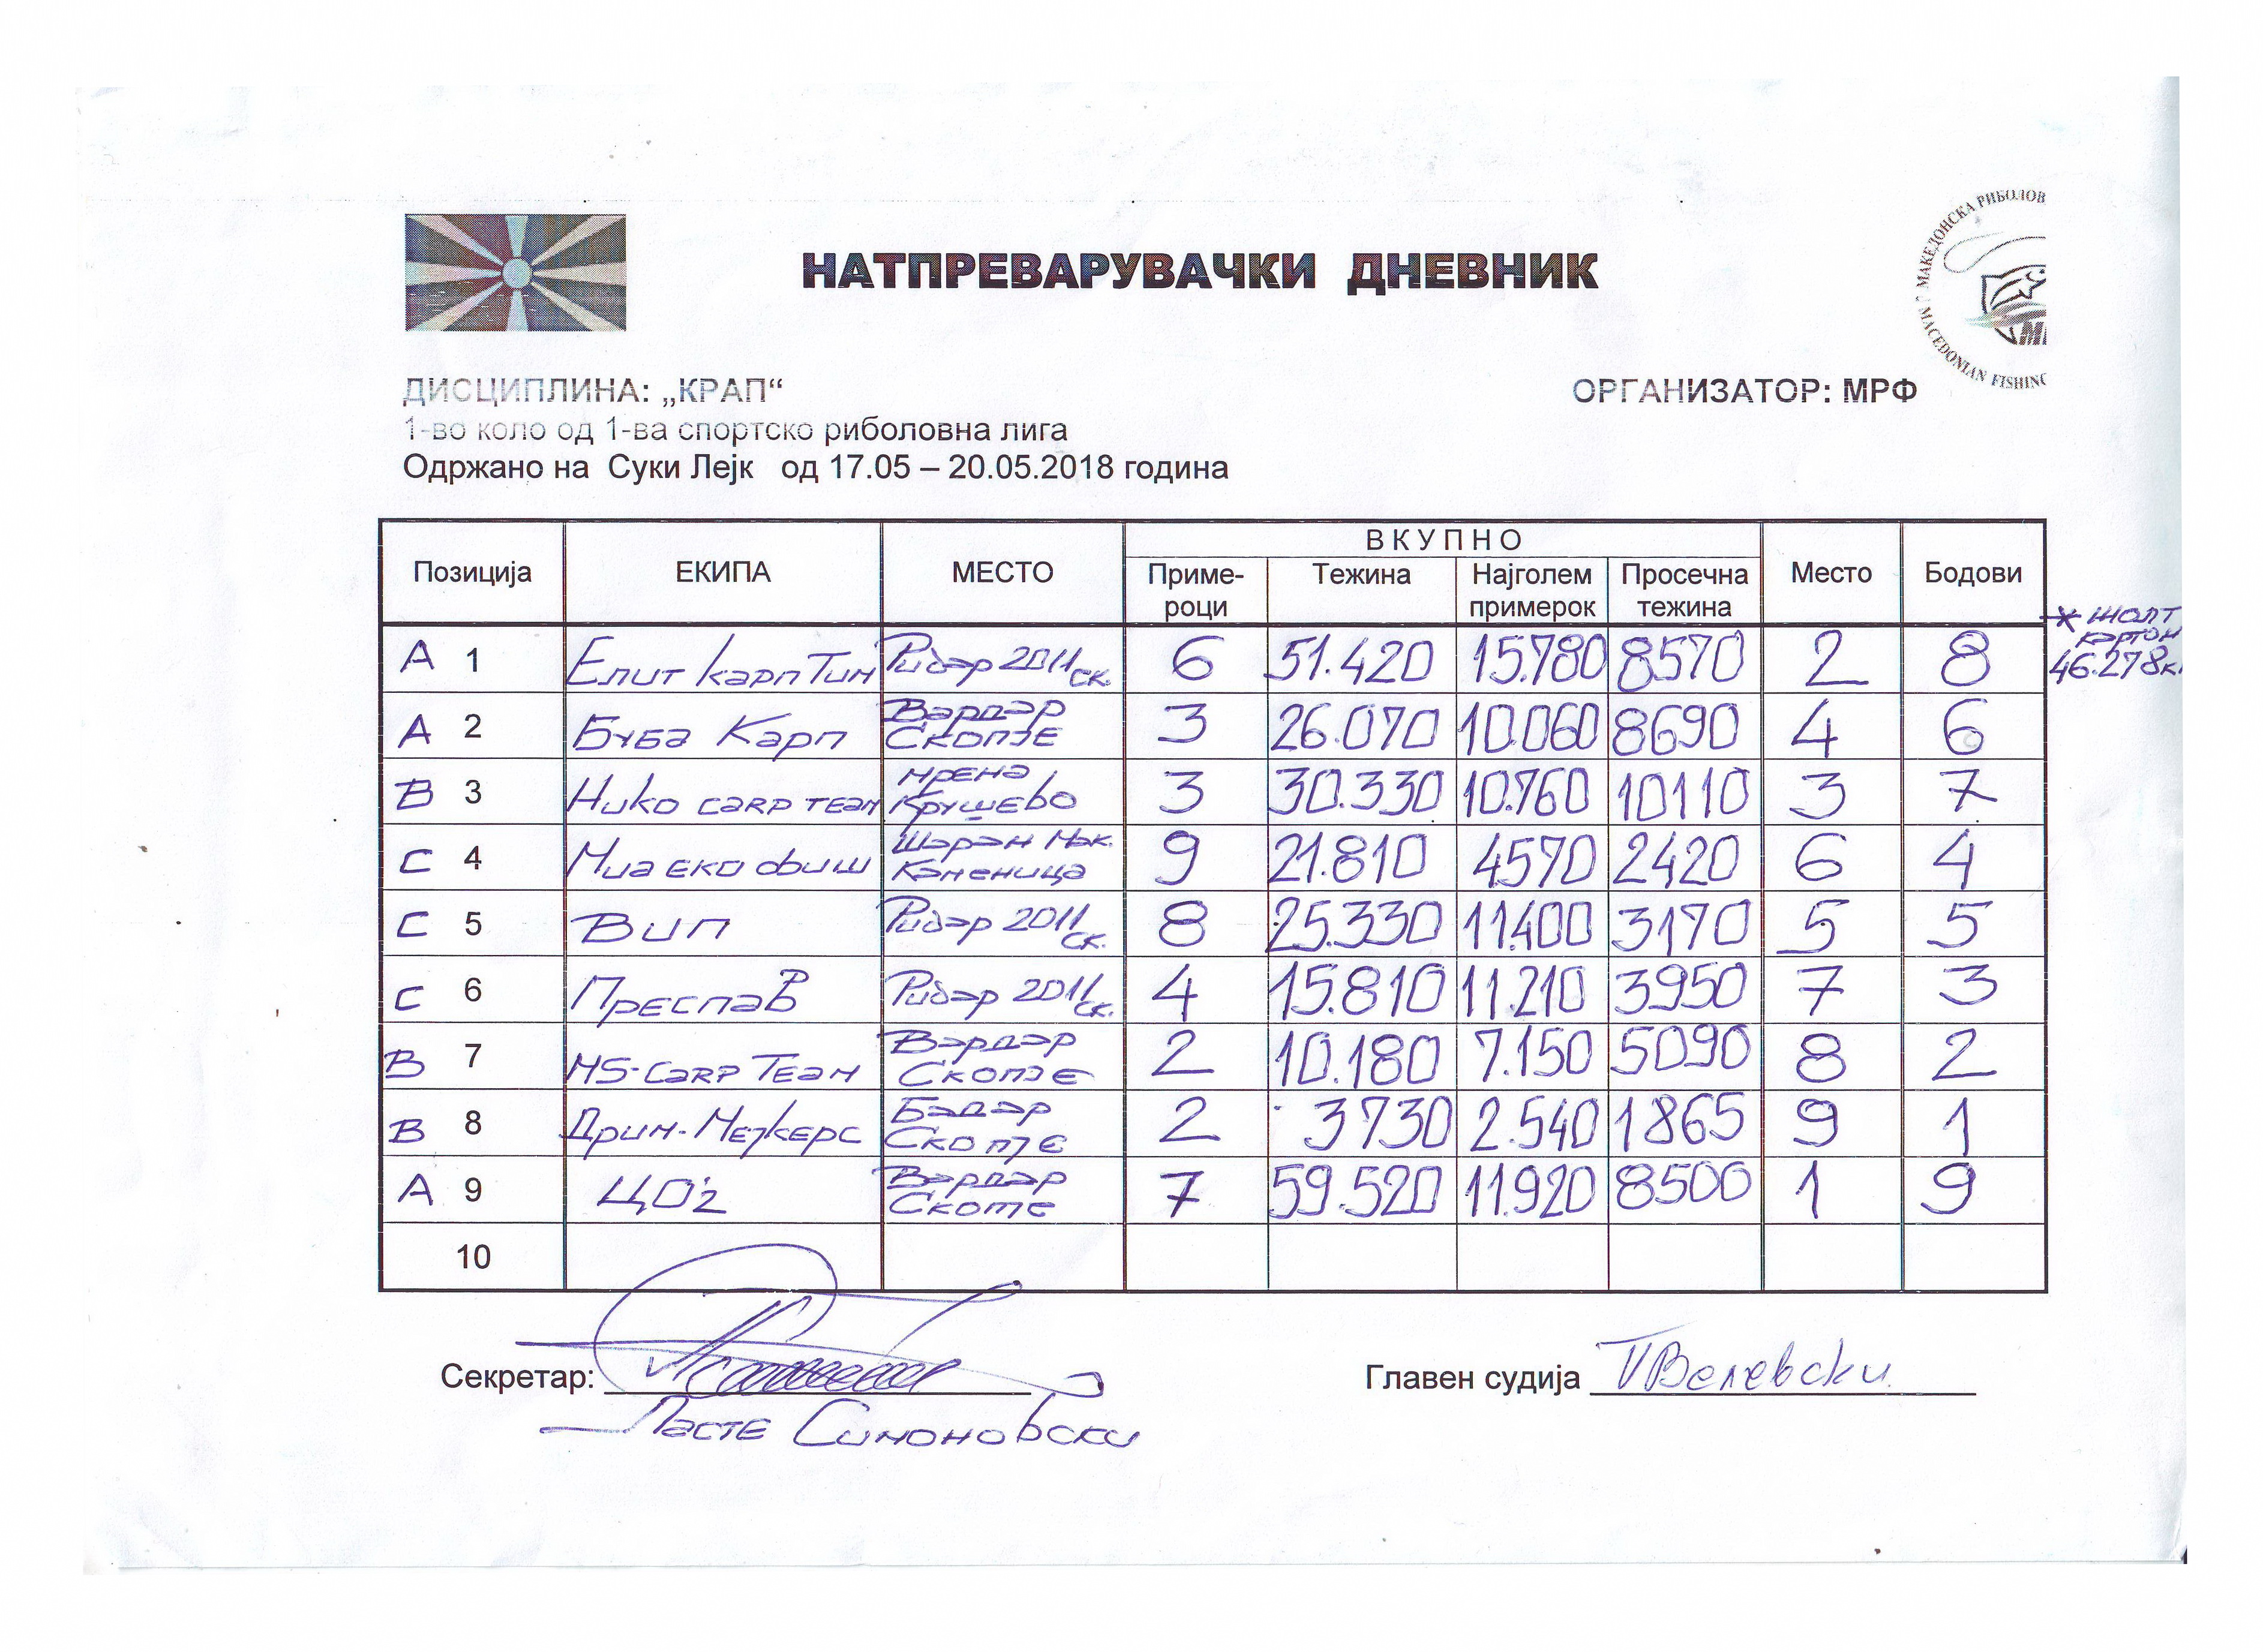 НАТПРЕВАРУВАЧКИ ДНЕВНИК
МАКЕДОНСКА РИБОЛОВ
MACEDONIAN FISHING
ДИСЦИПЛИНА: „КРАП“ ОРГАНИЗАТОР: МРФ
1-во коло од 1-ва спортско риболовна лига
Одржано на Суки Лејк од 17.05 – 20.05.2018 година
ВКУПНО
Позиција ЕКИПА МЕСТО Приме-роци Тежина Најголем примерок Просечна тежина Место Бодови
* жолт картон 46.278к.
А 1 Елит Карп Тим Рибар 2011 ск. 6 51.420 15.780 8570 2 8
А 2 Буба Карп Вардар Скопје 3 26.070 10.060 8690 4 6
В 3 Нико carp team мрена Крушево 3 30.330 10.760 10110 3 7
С 4 Миа еко фиш Шаран Мак. Каменица 9 21.810 4570 2420 6 4
С 5 Вип Рибар 2011 ск. 8 25.330 11.400 3170 5 5
С 6 Преспа Рибар 2011 ск. 4 15.810 11.210 3950 7 3
В 7 MS-Carp Team Вардар Скопје 2 10.180 7.150 5090 8 2
В 8 Дрим-Мејкерс Скопје 2 3730 2.540 1865 9 1
А 9 ЦО'2 Вардар Скопје 7 59.520 11.920 8500 1 9
10
Секретар: Главен судија Велевски
Ласте Симоновски